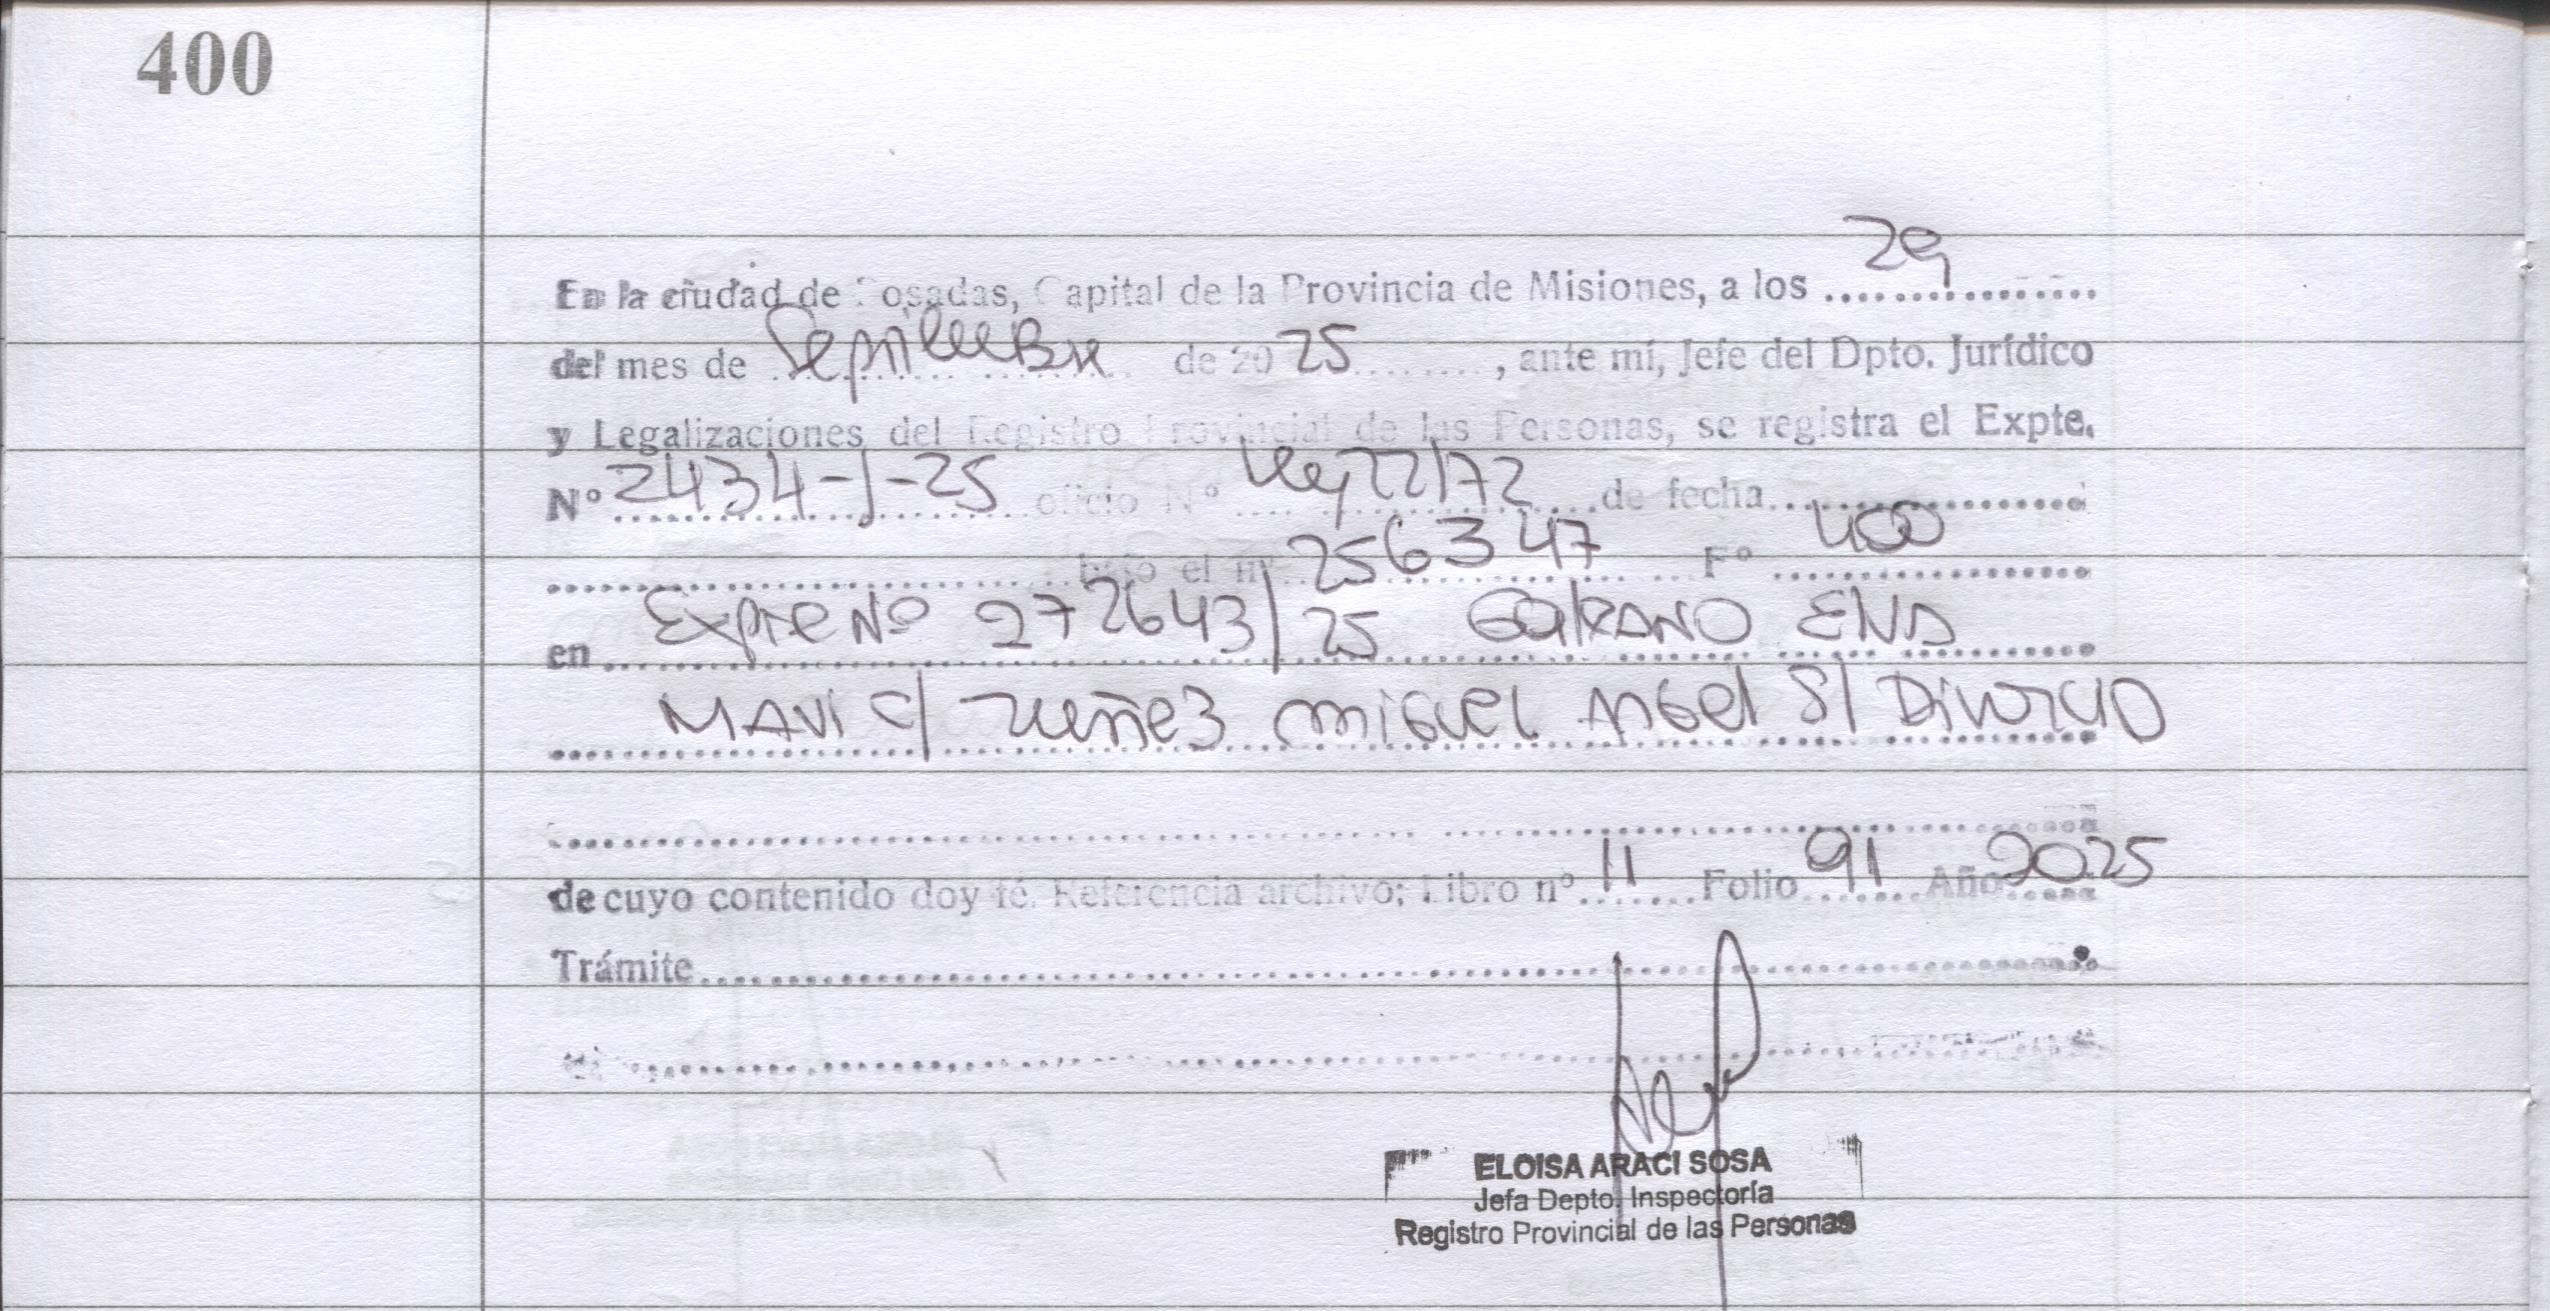 400
En la ciudad de Posadas, Capital de la Provincia de Misiones, a los 29
del mes de Septiembre de 2025, ante mí, Jefe del Dpto. Jurídico
y Legalizaciones del Registro Provincial de las Personas, se registra el Expte.
Nº 2434-J-25 oficio Nº Ley 22172 de fecha
bajo el nº 256347 Fº 400
en Expte Nº 272643/25 ENA
MAVI c/ Miguel Angel S/ Divorcio
de cuyo contenido doy fé. Referencia archivo; Libro nº 11 Folio 91 Año 2025
Trámite
ELOISA ARACI SOSA
Jefa Depto. Inspectoría
Registro Provincial de las Personas